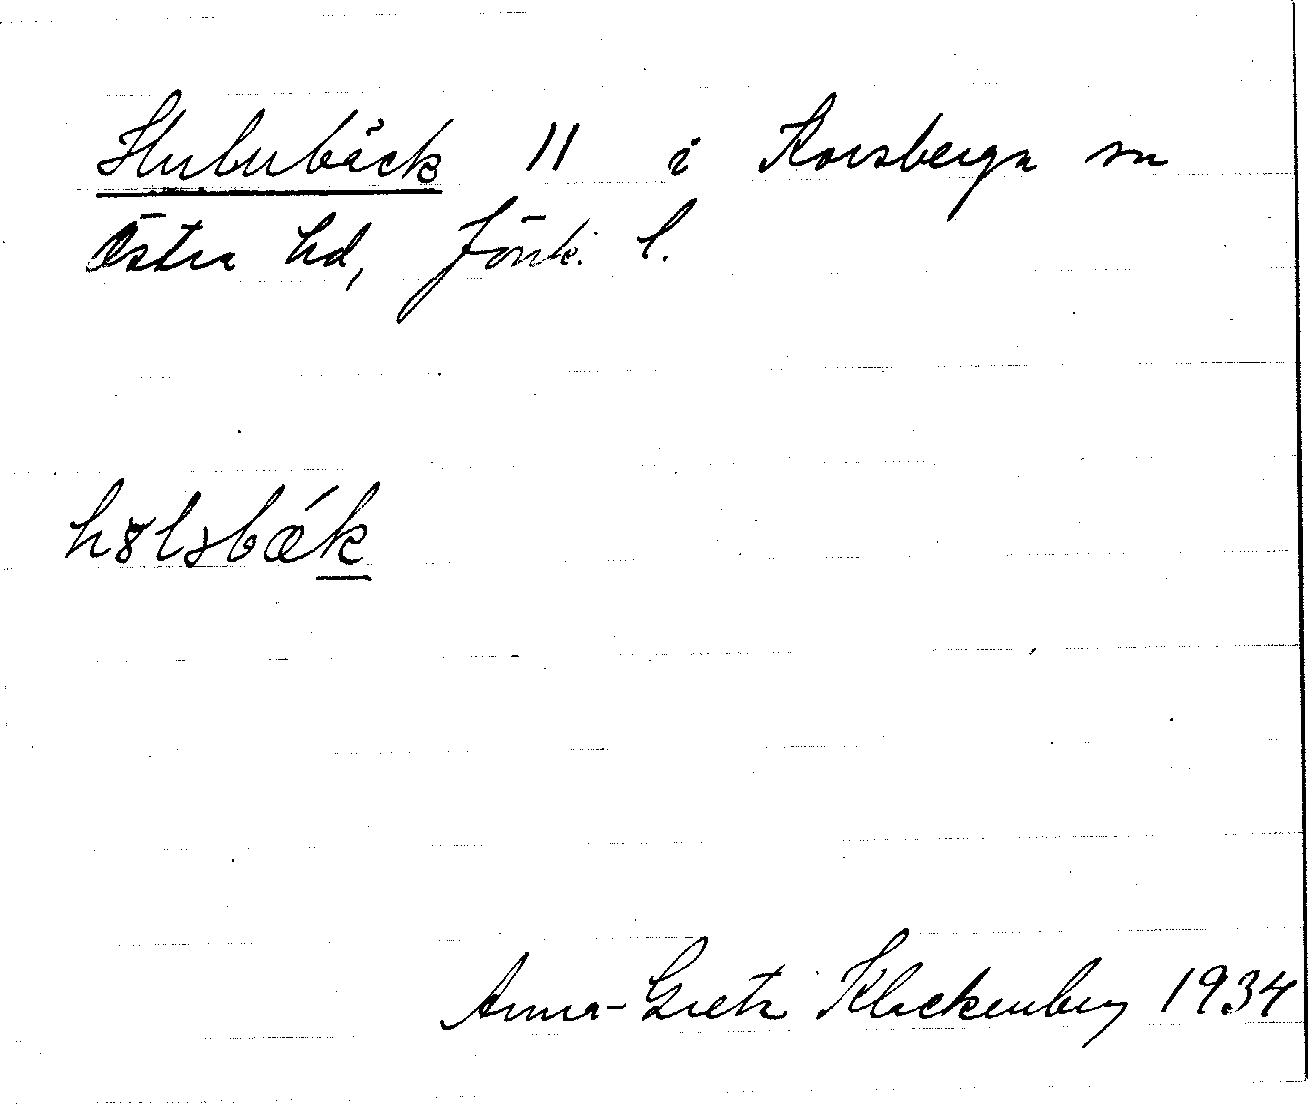 Hulubäck 11 i Korsberga sn
Östra hd, Jönk. l.
Anna-Greta Klockenberg 1934